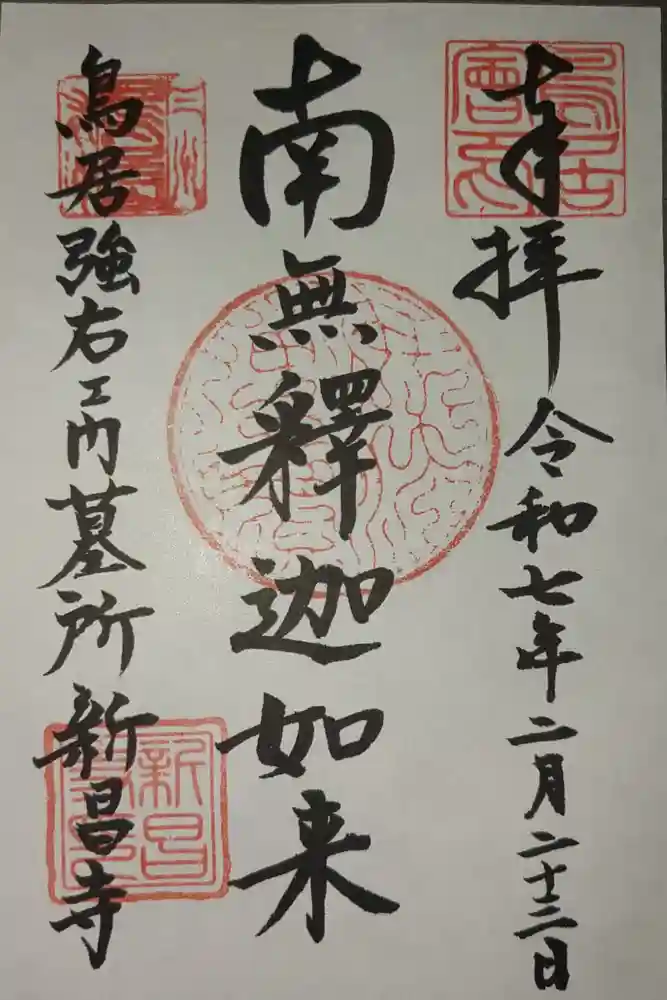 奉拝 令和七年二月二十三日
南無釋迦如来
鳥居強右エ門墓所 新昌寺